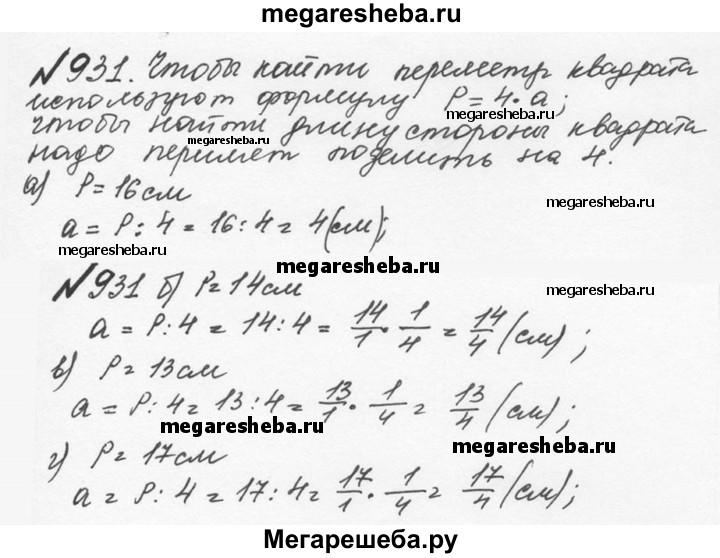 megaresheba.ru
№931. Чтобы найти периметр квадрата
используют формулу P = 4 · a;
чтобы найти длину стороны квадрата
megaresheba.ru
надо перимет поделить на 4.
а) P = 16 см
megaresheba.ru
a = P : 4 = 16 : 4 = 4 (см);
megaresheba.ru
megaresheba.ru
№931 б) P = 14 см
megaresheba.ru
a = P : 4 = 14 : 4 = 14/1 · 1/4 = 14/4 (см);
в) P = 13 см
a = P : 4 = 13 : 4 = 13/1 · 1/4 = 13/4 (см);
megaresheba.ru
megaresheba.ru
г) P = 17 см
a = P : 4 = 17 : 4 = 17/1 · 1/4 = 17/4 (см);
Мегарешеба.ру